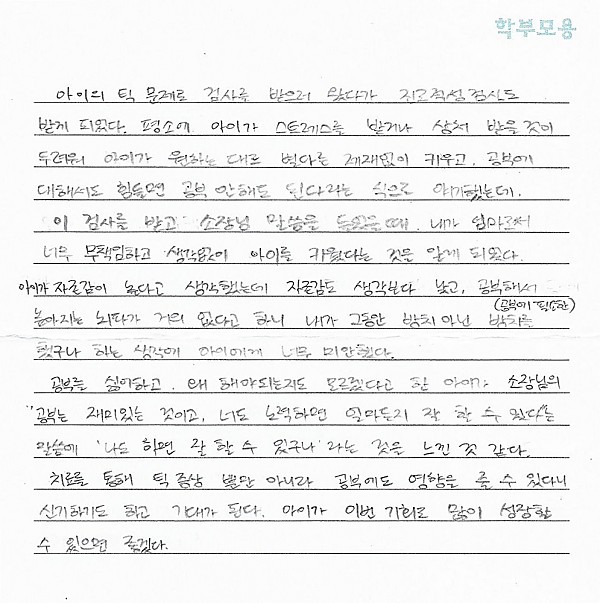 학부모용
아이의 틱 문제로 검사를 받으러 왔다가 진로적성검사도
받게 되었다. 평소에 아이가 스트레스를 받거나 상처 받을 것이
두려워 아이가 원하는 대로 별다른 제재없이 키우고, 공부에
대해서도 힘들면 공부 안해도 된다라는 식으로 얘기했는데.
이 검사를 받고 소장님 말씀을 들었을 때, 내가 엄마로서
너무 무책임하고 생각없이 아이를 키웠다는 것을 알게 되었다.
아이가 자존감이 높다고 생각했는데 자존감도 생각보다 낮고, 공부해서
(공부에 필요한)
높아지는 뇌파가 거의 없다고 하니 내가 그동안 방치 아닌 방치를
했구나 하는 생각에 아이에게 너무 미안했다.
공부를 싫어하고, 왜 해야되는지도 모르겠다고 한 아이가 소장님의
"공부는 재미있는 것이고, 너도 노력하면 얼마든지 잘 할 수 있다"는
말씀에 '나도 하면 잘 할 수 있구나'라는 것을 느낀 것 같다.
치료를 통해 틱 증상 뿐만 아니라 공부에도 영향을 줄 수 있다니
신기하기도 하고 기대가 된다. 아이가 이번 기회로 많이 성장할
수 있으면 좋겠다.